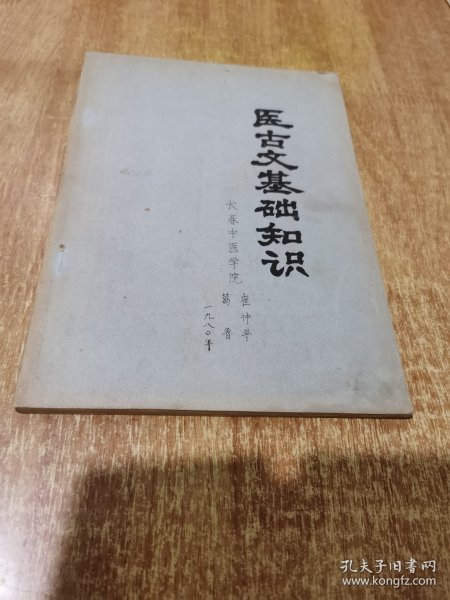 医古文基础知识
长春中医学院
崔仲平
葛鲁
一九八〇年
孔夫子旧书网
www.kongfz.com